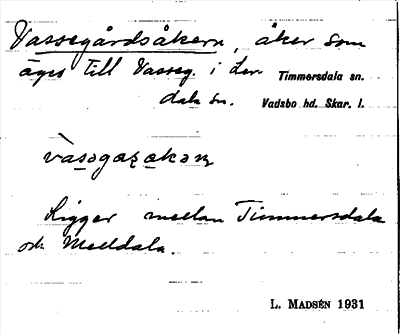 Vassegårdsåkern, åker som
äges till Vasseg. i Ler
dala sn.
Timmersdala sn.
Vadsbo hd. Skar. l.
Ligger mellan Timmersdala
och Melldala.
L. MADSÉN 1931